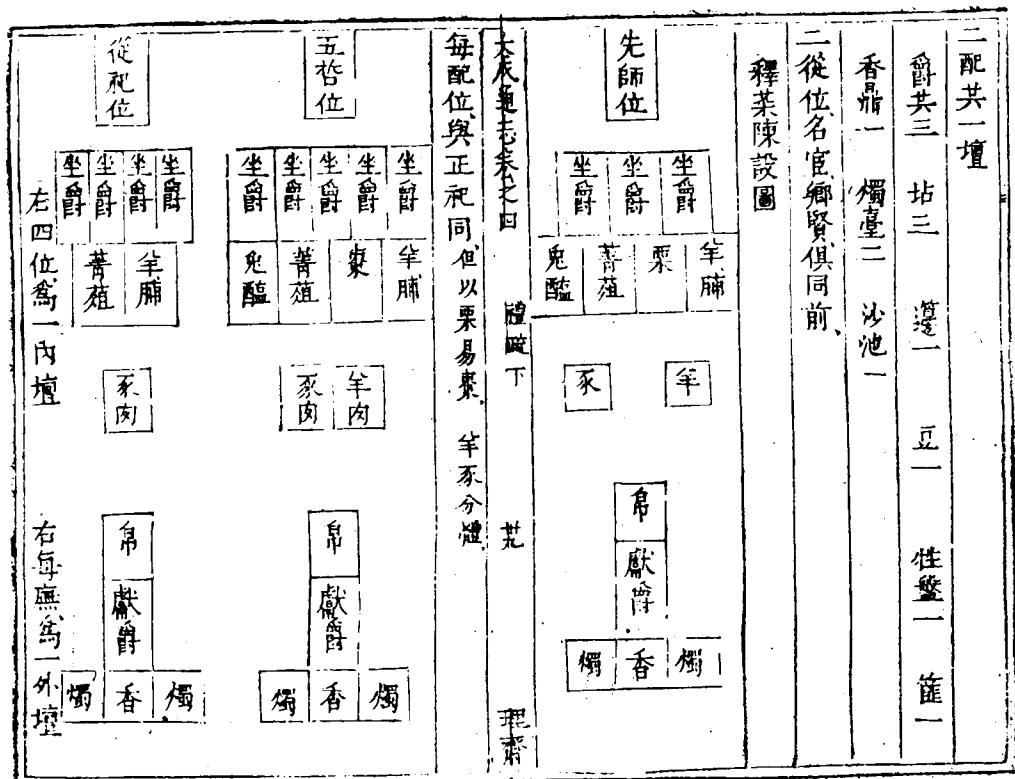 二配共一壇
爵共三 坫三 籩一 豆一 牲盤一 篚一
香鼎一 燭臺二 沙池一
二從位名宦鄉賢俱同前
釋菜陳設圖
先師位
坐爵 坐爵 坐爵
羊脯 栗 菁菹 兔醢
羊 豕
帛
獻爵
燭 香 燭
大成通志卷之四 禮疏下 芄 理齋
每配位與正祀同但以栗易棗 羊豕分體
五哲位
坐爵 坐爵 坐爵 坐爵 坐爵
羊脯 棗 菁菹 兔醢
羊肉 豕肉
帛
獻爵
燭 香 燭
從祀位
坐爵 坐爵 坐爵 坐爵
羊脯 菁菹
豕肉
帛
獻爵
燭 香 燭
右四位為一內壇 右每廡為一外壇